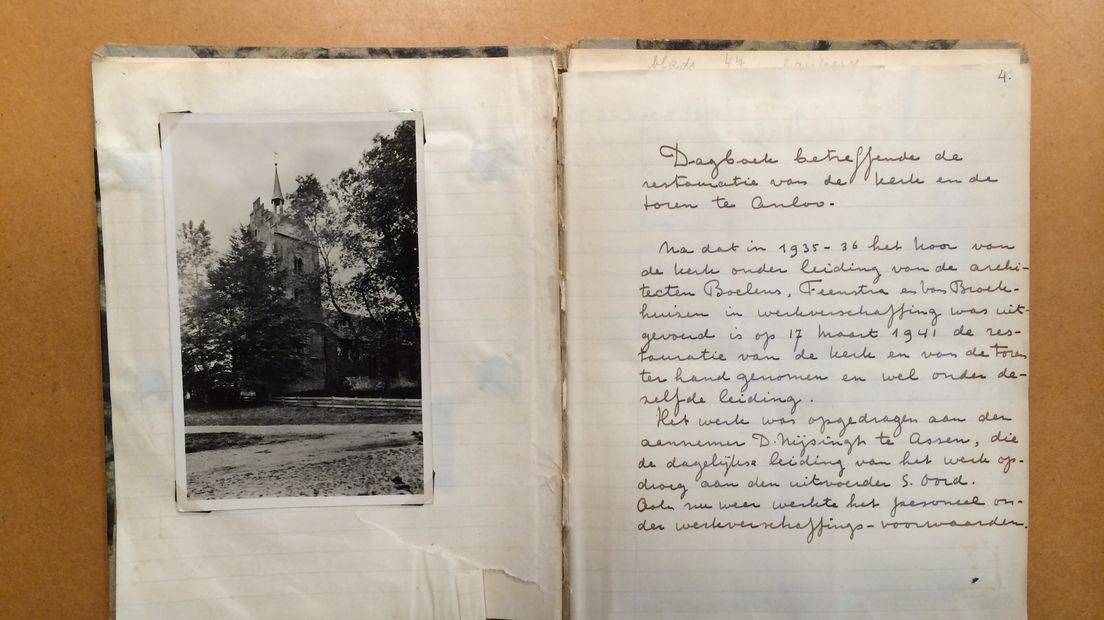 blads 47
4.
Dagboek betreffende de
restauratie van de kerk en de
toren te Anloo.
Na dat in 1935-36 het koor van
de kerk onder leiding van de archi-
tecten Boelens, Feenstra en van Broek-
huizen in werkverschaffing was uit-
gevoerd is op 17 Maart 1941 de res-
tauratie van de kerk en van de toren
ter hand genomen en wel onder de-
zelfde leiding.
Het werk was opgedragen aan den
aannemer D. Nijsingh te Assen, die
de dagelijkse leiding van het werk op-
droeg aan den uitvoerder S. Oord.
Ook nu weer werkte het personeel on-
der werkverschaffings-voorwaarden.